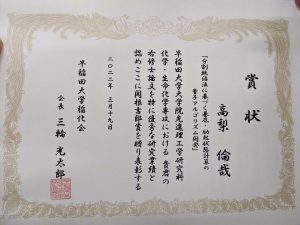 賞状
高梨 倫哉
「分割統治法に基づく基底・励起状態計算の
量子アルゴリズム開発」
早稲田大学大学院先進理工学研究科
化学・生命化学専攻における 貴君の
右修士論文を特に優秀な研究業績と
認めここに関根吉郎賞を贈り表彰する
二〇二二年 三月十九日
早稲田大学稲化会
会長 三輪 光太郎